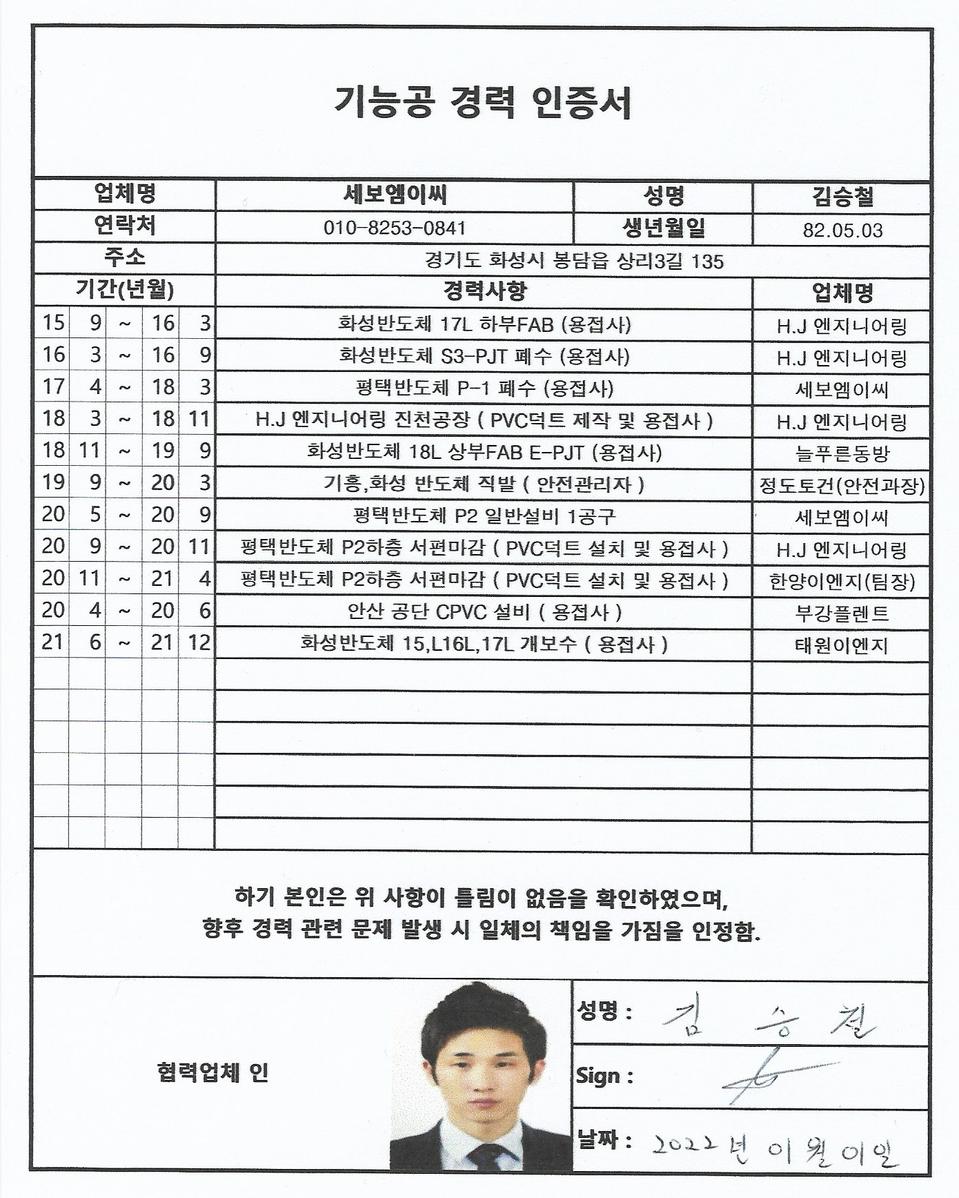 기능공 경력 인증서
업체명 세보엠이씨 성명 김승철
연락처 010-8253-0841 생년월일 82.05.03
주소 경기도 화성시 봉담읍 상리3길 135
기간(년월) 경력사항 업체명
15 9 ~ 16 3 화성반도체 17L 하부FAB (용접사) H.J 엔지니어링
16 3 ~ 16 9 화성반도체 S3-PJT 폐수 (용접사) H.J 엔지니어링
17 4 ~ 18 3 평택반도체 P-1 폐수 (용접사) 세보엠이씨
18 3 ~ 18 11 H.J 엔지니어링 진천공장 ( PVC덕트 제작 및 용접사 ) H.J 엔지니어링
18 11 ~ 19 9 화성반도체 18L 상부FAB E-PJT (용접사) 늘푸른동방
19 9 ~ 20 3 기흥,화성 반도체 직발 ( 안전관리자 ) 정도토건(안전과장)
20 5 ~ 20 9 평택반도체 P2 일반설비 1공구 세보엠이씨
20 9 ~ 20 11 평택반도체 P2하층 서편마감 ( PVC덕트 설치 및 용접사 ) H.J 엔지니어링
20 11 ~ 21 4 평택반도체 P2하층 서편마감 ( PVC덕트 설치 및 용접사 ) 한양이엔지(팀장)
20 4 ~ 20 6 안산 공단 CPVC 설비 ( 용접사 ) 부강플렌트
21 6 ~ 21 12 화성반도체 15,L16L,17L 개보수 ( 용접사 ) 태원이엔지
하기 본인은 위 사항이 틀림이 없음을 확인하였으며,
향후 경력 관련 문제 발생 시 일체의 책임을 가짐을 인정함.
협력업체 인
성명 : 김 승 철
Sign :
날짜 : 2022년 01월 01일